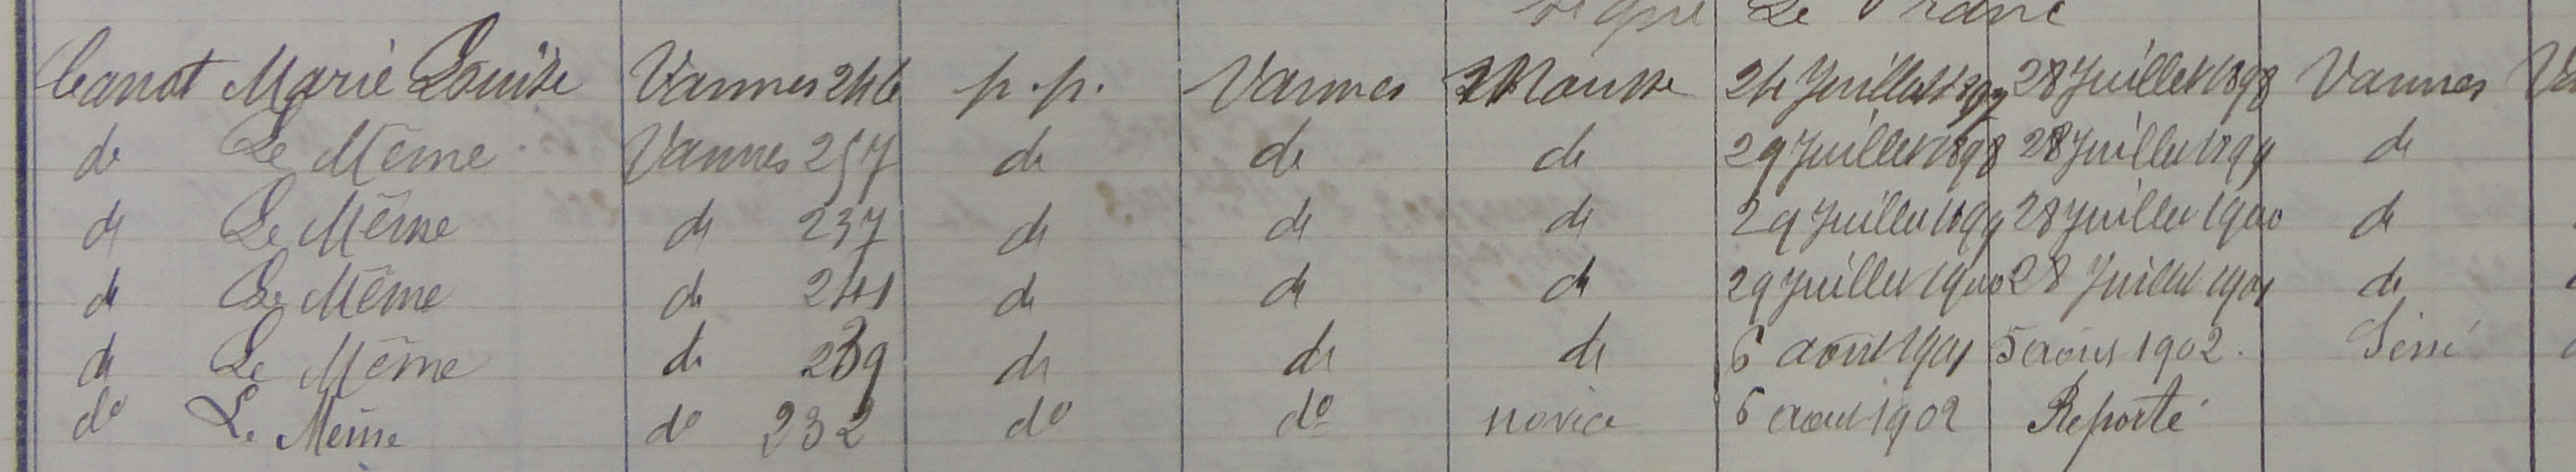 Le Franc
Canot Marie Louise Vannes 246 p.p. Vannes Mousse 24 Juillet 1897 28 Juillet 1898 Vannes
do Le Même Vannes 257 do do do 29 Juillet 1898 28 Juillet 1899 do
do Le Même do 237 do do do 29 Juillet 1899 28 Juillet 1900 do
do Le Même do 241 do do do 29 Juillet 1900 28 Juillet 1901 do
do Le Même do 239 do do do 6 aout 1901 5 aout 1902. Séné
do Le Même do 232 do do novice 6 aout 1902 Reporté